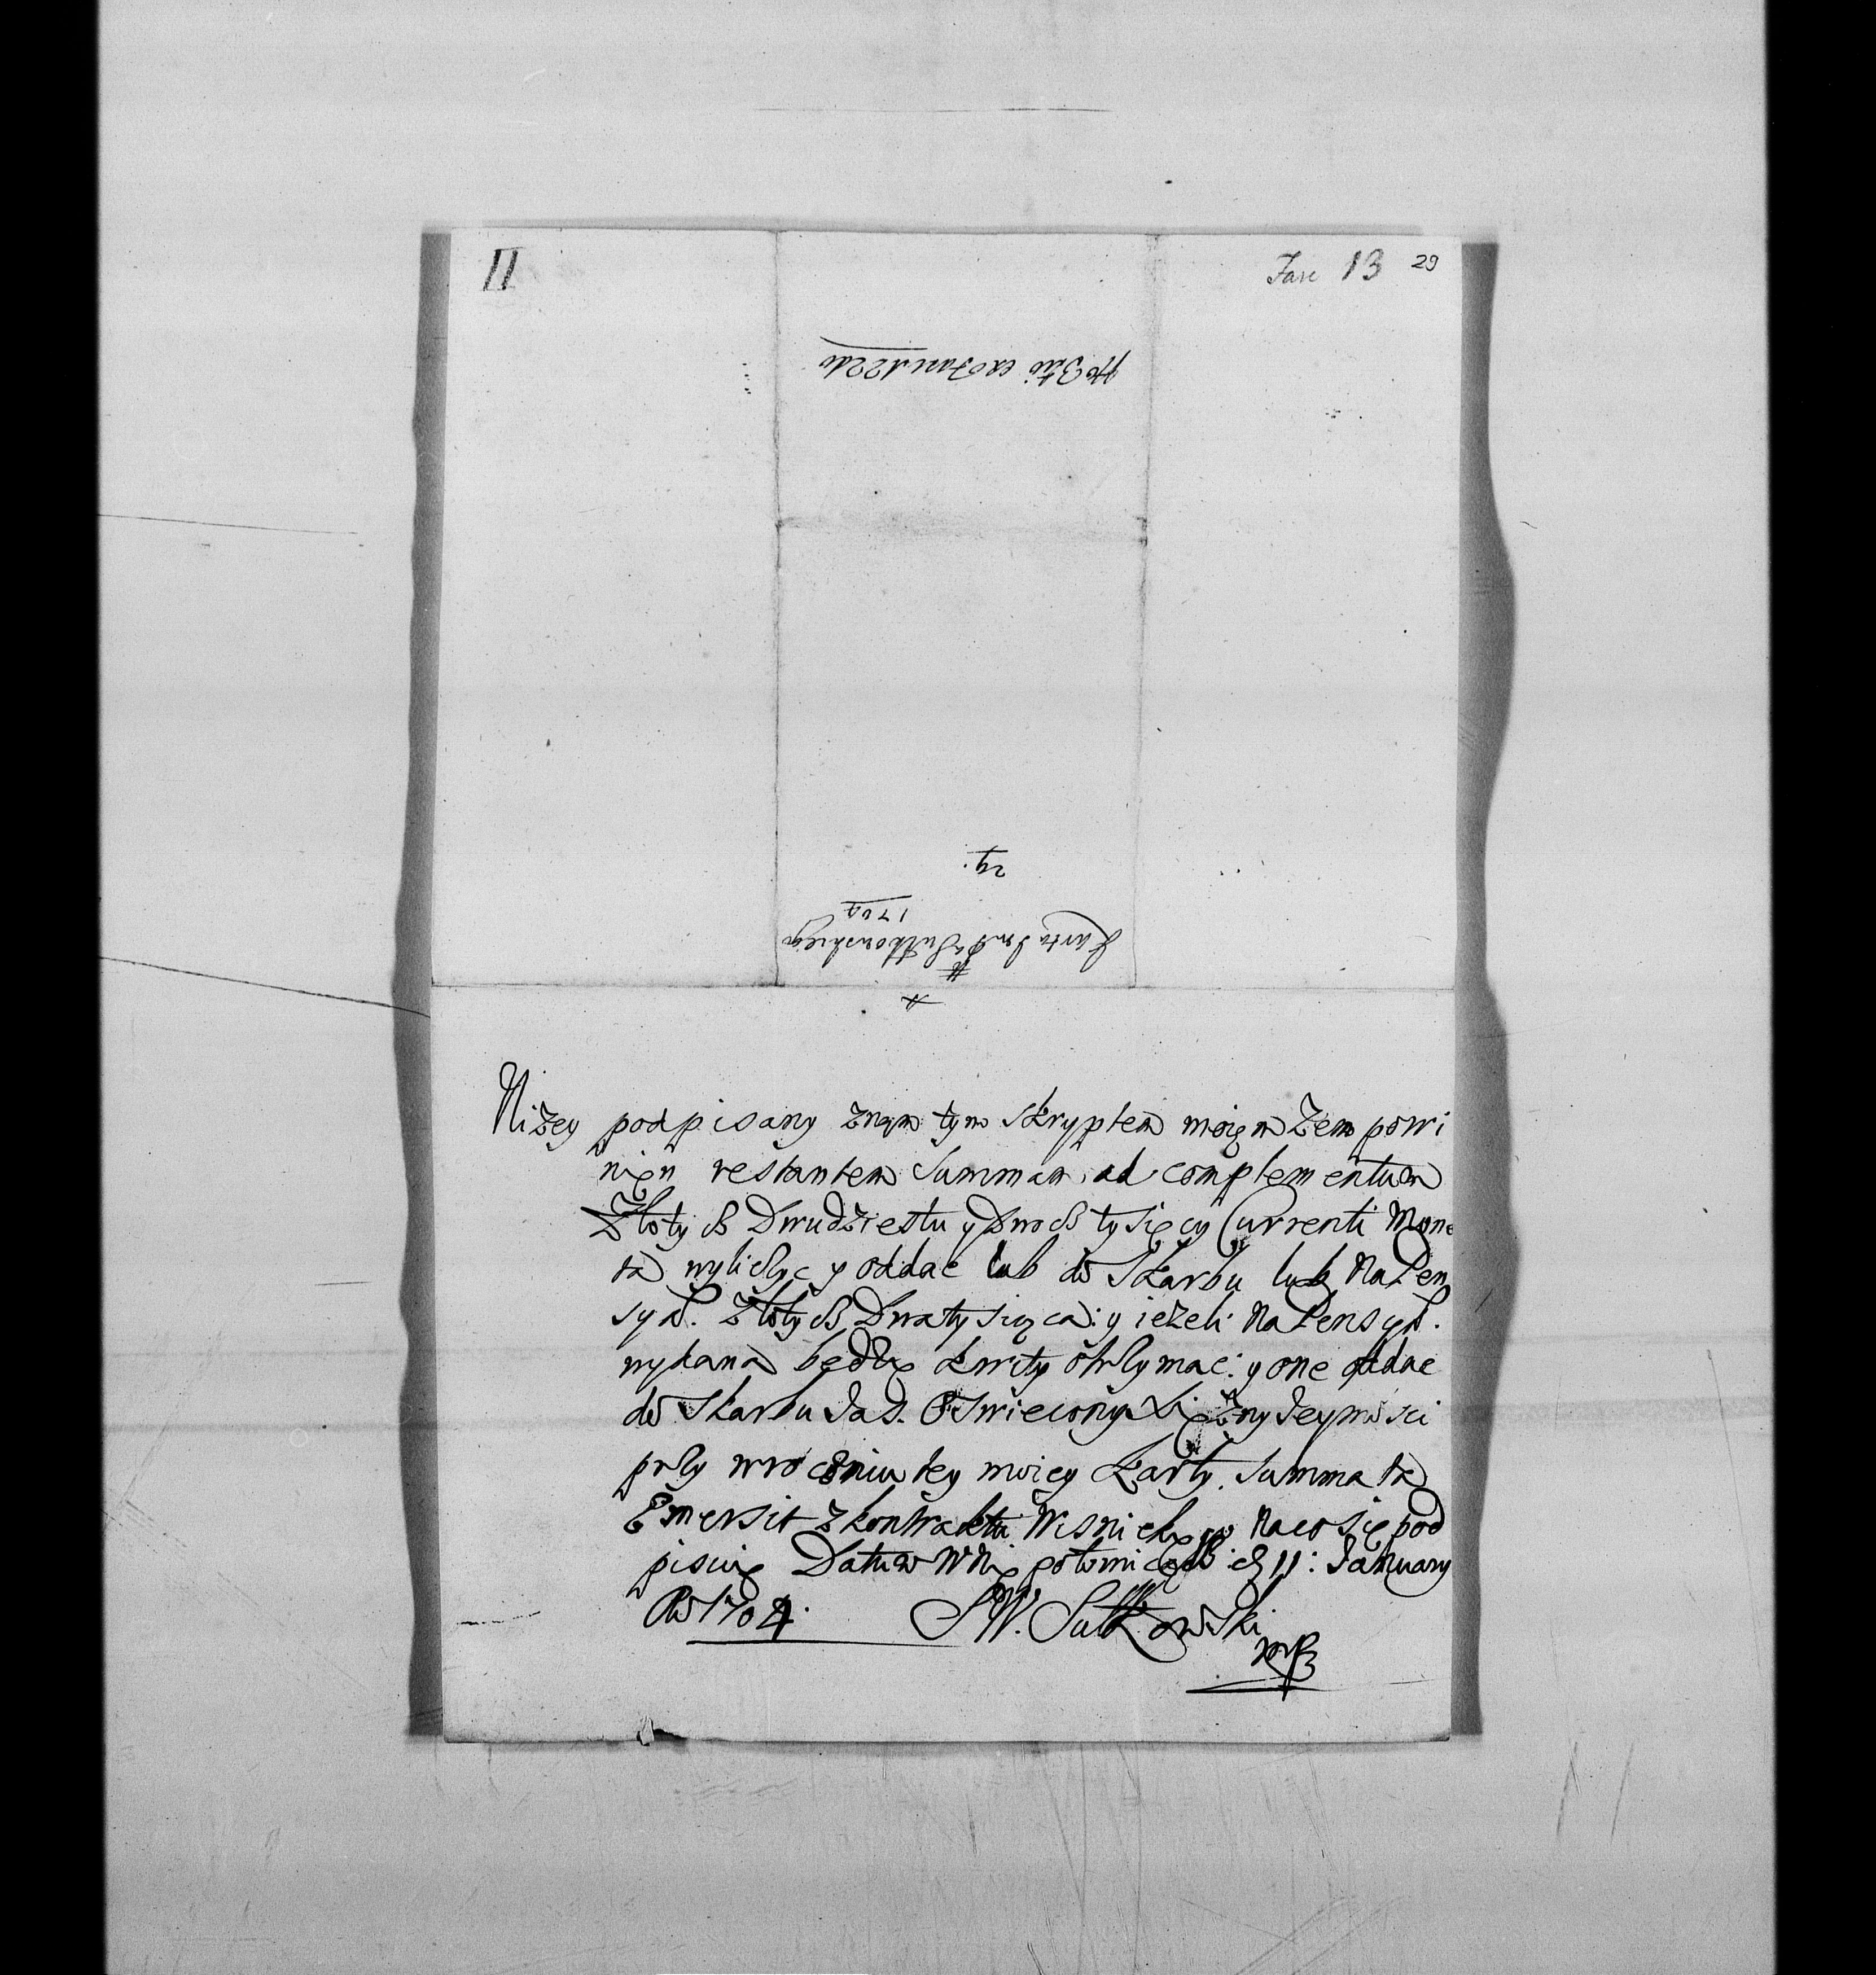 II
Fasc 13 29
No 3tio ex Fasc 122do
29.
1704
Karta Jmći Pa Sułkowskiego
Niżey podpisany znam tym skryptem moiem Zem powi
nien restantem Summam ad complementum
Złotych Dwudziestu y Dwoch tysięcy Currenti Mone
ta wyliczyc y oddac lub do Skarbu lub Na Pen
syą. Złotych Dwa tysiąca: y ieżeli Na Pensyą.
wydana będzie kwity otrzymac: y one oddac
do Skarbu Jas. Oswieconey Xiężny Jeymosci
przy wroceniu tey moiey Karty. Summa ta
Emersit z kontraktu Na co się pod
pisuię Datum W 11: January
Ao 1704. SW. Sułkowski
mp